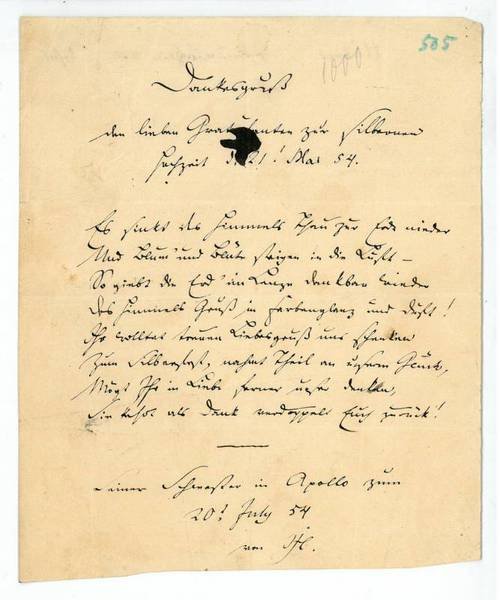 505
1000
Dankesgruß
den lieben Gratulanten zur silbernen
Hochzeit d. 21! Mai 54.
Es sinkt des Himmels Thau zur Erde nieder
Und Blum' und Blüte steigen in die Luft –
So giebt die Erd' im Lenze dankbar wieder
Des Himmels Gruß in Farbenglanz und Duft!
Ihr wolltet treuen Liebesgruß uns schenken
Zum Silberfest, nahmt Theil an unserm Glück,
Mögt Ihr in Liebe ferner unser denken,
Sie kehrt als Dank verdoppelt Euch zurück!
Schwester in Apollo zum
20! July 54
von